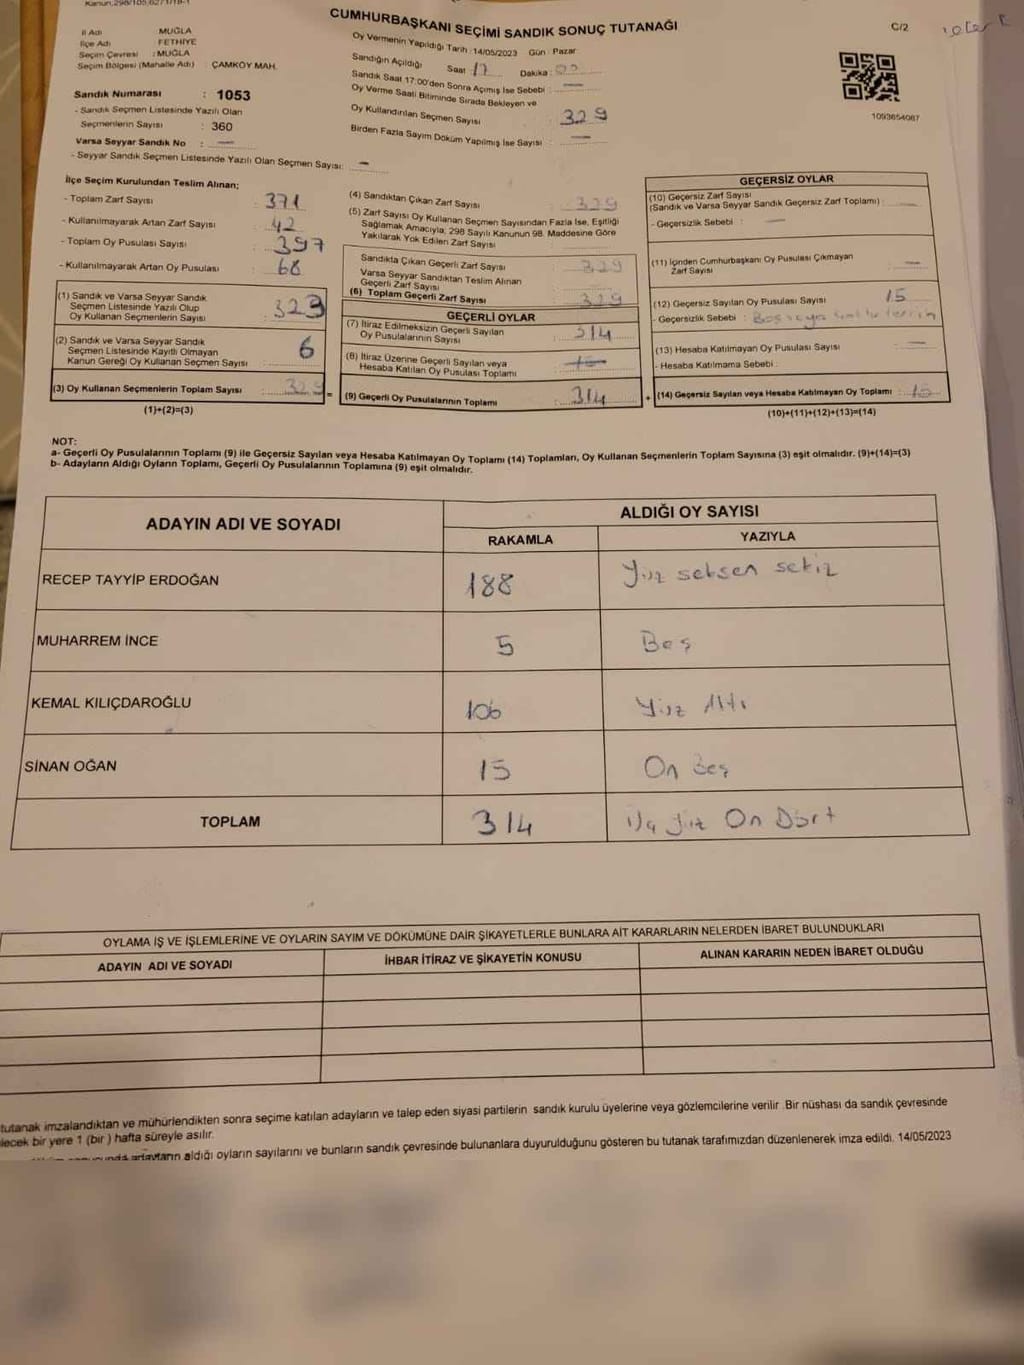 Kanun,298/105,6271/19-1
CUMHURBAŞKANI SEÇİMİ SANDIK SONUÇ TUTANAĞI
C/2
İl Adı MUĞLA
İlçe Adı FETHİYE
Seçim Çevresi : MUĞLA
Seçim Bölgesi (Mahalle Adı) : ÇAMKÖY MAH.
Sandık Numarası : 1053
- Sandık Seçmen Listesinde Yazılı Olan
Seçmenlerin Sayısı : 360
Varsa Seyyar Sandık No : —
- Seyyar Sandık Seçmen Listesinde Yazılı Olan Seçmen Sayısı: —
Oy Vermenin Yapıldığı Tarih : 14/05/2023 Gün : Pazar
Sandığın Açıldığı Saat 17 Dakika : 00
Sandık Saat 17:00'den Sonra Açımış İse Sebebi : —
Oy Verme Saati Bitiminde Sırada Bekleyen ve
Oy Kullandırılan Seçmen Sayısı 329
Birden Fazla Sayım Döküm Yapılmış İse Sayısı : —
1093654087
İlçe Seçim Kurulundan Teslim Alınan;
- Toplam Zarf Sayısı : 371
- Kullanılmayarak Artan Zarf Sayısı : 42
- Toplam Oy Pusulası Sayısı : 397
- Kullanılmayarak Artan Oy Pusulası : 68
(1) Sandık ve Varsa Seyyar Sandık
Seçmen Listesinde Yazılı Olup
Oy Kullanan Seçmenlerin Sayısı : 323
(2) Sandık ve Varsa Seyyar Sandık
Seçmen Listesinde Kayıtlı Olmayan
Kanun Gereği Oy Kullanan Seçmen Sayısı : 6
(3) Oy Kullanan Seçmenlerin Toplam Sayısı : 329 =
(1)+(2)=(3)
(4) Sandıktan Çıkan Zarf Sayısı : 329
(5) Zarf Sayısı Oy Kullanan Seçmen Sayısından Fazla İse, Eşitliği
Sağlamak Amacıyla, 298 Sayılı Kanunun 98. Maddesine Göre
Yakılarak Yok Edilen Zarf Sayısı :
Sandıkta Çıkan Geçerli Zarf Sayısı : 329
Varsa Seyyar Sandıktan Teslim Alınan
Geçerli Zarf Sayısı :
(6) Toplam Geçerli Zarf Sayısı : 329
GEÇERLİ OYLAR
(7) İtiraz Edilmeksizin Geçerli Sayılan
Oy Pusulalarının Sayısı : 314
(8) İtiraz Üzerine Geçerli Sayılan veya
Hesaba Katılan Oy Pusulası Toplamı :
(9) Geçerli Oy Pusulalarının Toplamı : 314
GEÇERSİZ OYLAR
(10) Geçersiz Zarf Sayısı
(Sandık ve Varsa Seyyar Sandık Geçersiz Zarf Toplamı) : —
- Geçersizlik Sebebi : —
(11) İçinden Cumhurbaşkanı Oy Pusulası Çıkmayan
Zarf Sayısı : —
(12) Geçersiz Sayılan Oy Pusulası Sayısı : 15
- Geçersizlik Sebebi : Boş veya
(13) Hesaba Katılmayan Oy Pusulası Sayısı : —
- Hesaba Katılmama Sebebi :
+ (14) Geçersiz Sayılan veya Hesaba Katılmayan Oy Toplamı : 15
(10)+(11)+(12)+(13)=(14)
NOT:
a- Geçerli Oy Pusulalarının Toplamı (9) ile Geçersiz Sayılan veya Hesaba Katılmayan Oy Toplamı (14) Toplamları, Oy Kullanan Seçmenlerin Toplam Sayısına (3) eşit olmalıdır. (9)+(14)=(3)
b- Adayların Aldığı Oyların Toplamı, Geçerli Oy Pusulalarının Toplamına (9) eşit olmalıdır.
ADAYIN ADI VE SOYADI
ALDIĞI OY SAYISI
RAKAMLA YAZIYLA
RECEP TAYYİP ERDOĞAN 188 Yüz seksen sekiz
MUHARREM İNCE 5 Beş
KEMAL KILIÇDAROĞLU 106 Yüz Altı
SİNAN OĞAN 15 On Beş
TOPLAM 314 Üç Yüz On Dört
OYLAMA İŞ VE İŞLEMLERİNE VE OYLARIN SAYIM VE DÖKÜMÜNE DAİR ŞİKAYETLERLE BUNLARA AİT KARARLARIN NELERDEN İBARET BULUNDUKLARI
ADAYIN ADI VE SOYADI İHBAR İTİRAZ VE ŞİKAYETİN KONUSU ALINAN KARARIN NEDEN İBARET OLDUĞU
tutanak imzalandıktan ve mühürlendikten sonra seçime katılan adayların ve talep eden siyasi partilerin sandık kurulu üyelerine veya gözlemcilerine verilir. Bir nüshası da sandık çevresinde
lecek bir yere 1 (bir ) hafta süreyle asılır.
adayların aldığı oyların sayılarını ve bunların sandık çevresinde bulunanlara duyurulduğunu gösteren bu tutanak tarafımızdan düzenlenerek imza edildi. 14/05/2023